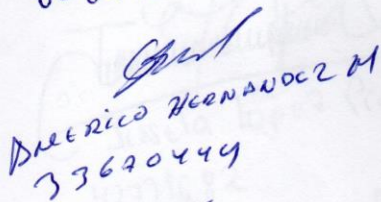 AMERICO HERNANDEZ M
33670444